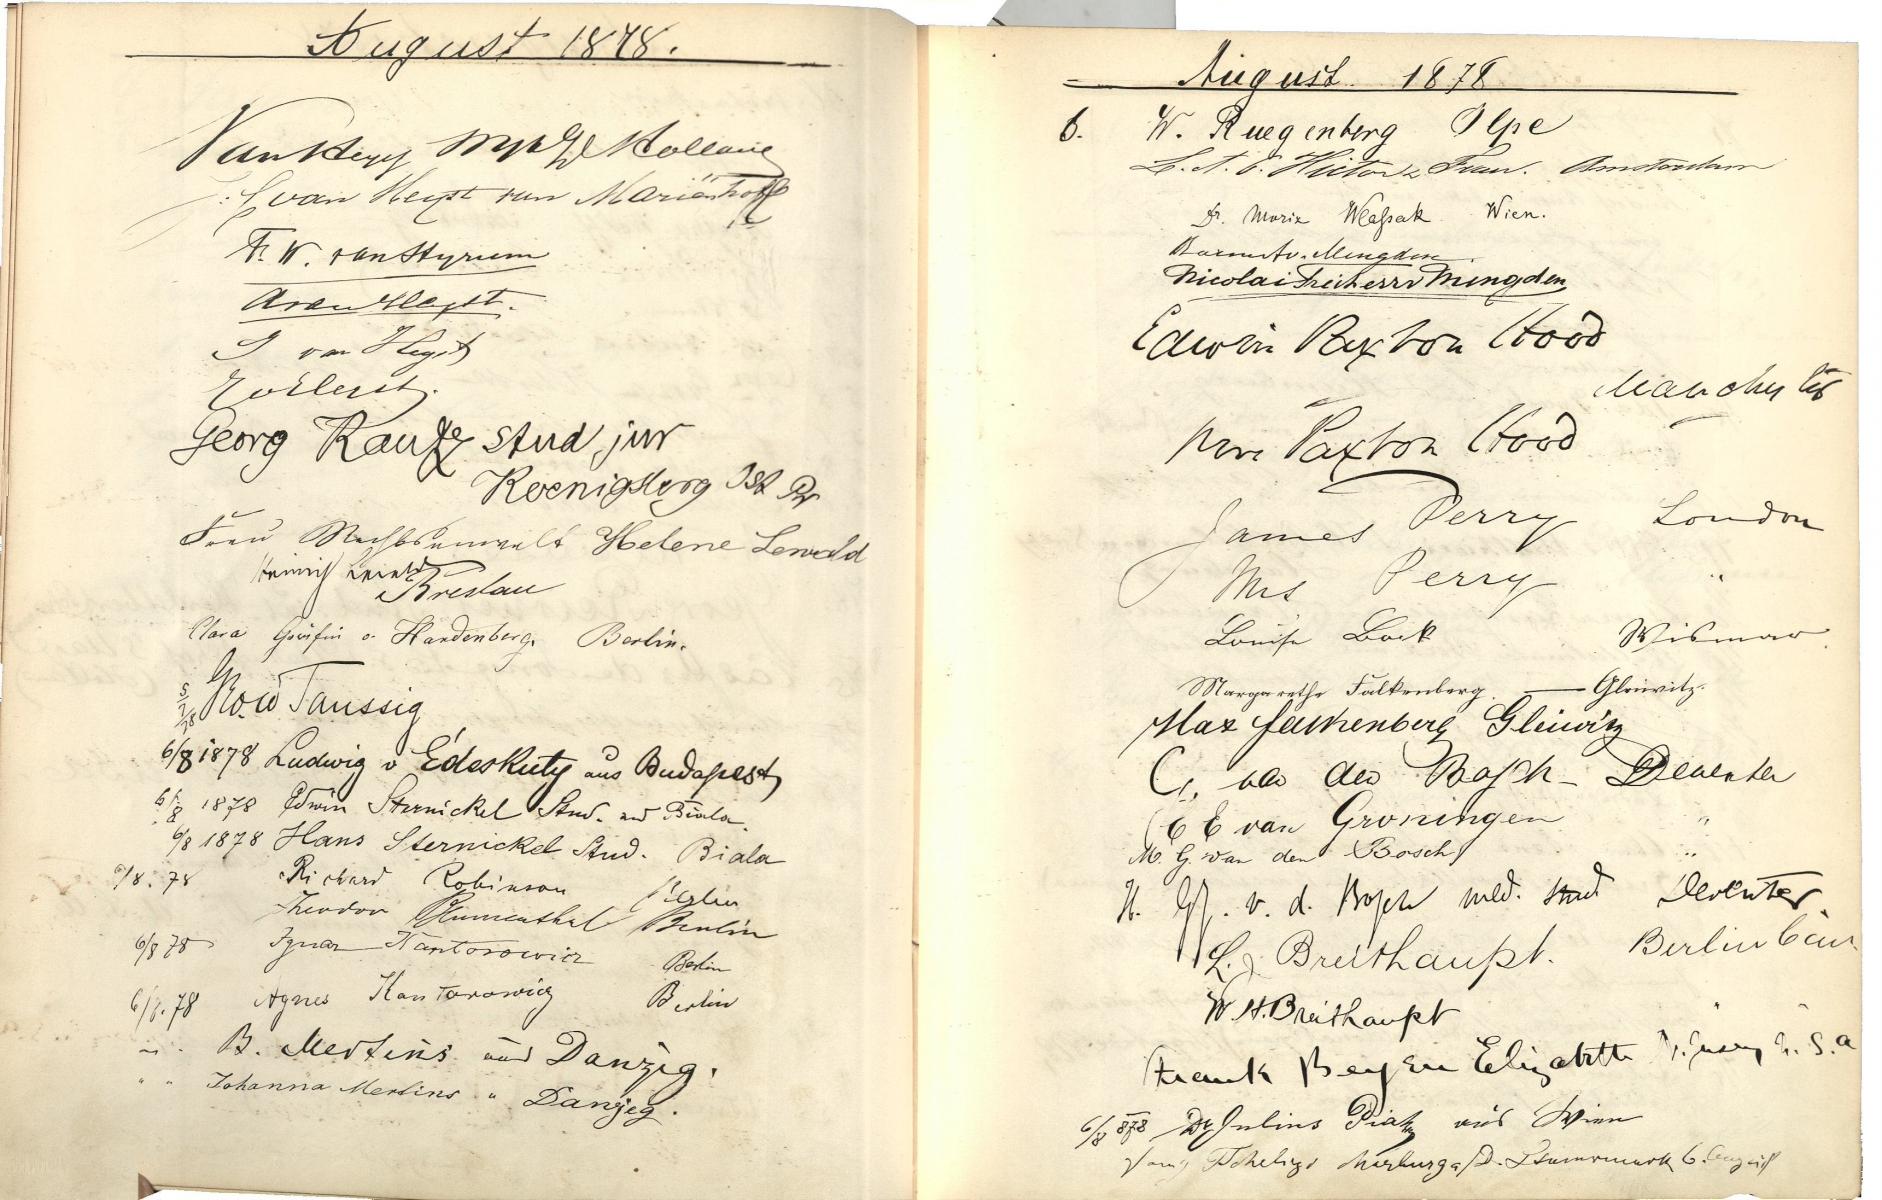 August 1878.
J. van Heyst van Mariënhoff
F. W. van Styrum
A van Heyst.
J van Heyst
Georg Kautz stud jur
Koenigsberg Ost Pr
Frau Rechtsanwalt Helene Lewald
Heinrich Lewald
Breslau
Clara Gräfin v. Hardenberg. Berlin.
Taussig
6/8 1878 Ludwig v Édeskuty aus Budapest
6/8 1878 Edwin Sternickel Stud. aus Biala.
6/8 1878 Hans Sternickel Stud. Biala
6/8. 78 Richard Robinson Berlin
Theodor Blumenthal Berlin
6/8 78 Ignaz Kantorowicz Berlin
6/8. 78 Agnes Kantorowicz Berlin
B. Mertens aus Danzig.
" " Johanna Mertins " Danzig.
August 1878
6. W. Ruegenberg Olpe
Amsterdam
Dr. Moriz Wlassak Wien.
Baronin v. Mengden.
Nicolai Freiherr v Mengden
Edwin Paxton Hood
Manchester
Mrs Paxton Hood
James Perry London
Mrs Perry "
Louise Bock Wismar.
Margarethe Falkenberg. — Gleiwitz.
Max Falkenberg Gleiwitz
C. van den Bosch - Deventer
E E van Groningen "
M. G. van den Bosch "
H. v. d. Bosch med. stud Deventer.
L. J. Breithaupt. Berlin Can.
W. H. Breithaupt " "
Frank Bergen Elizabeth N. Jersey U. S. A
6/8 878 Dr Julius Piatz aus Wien